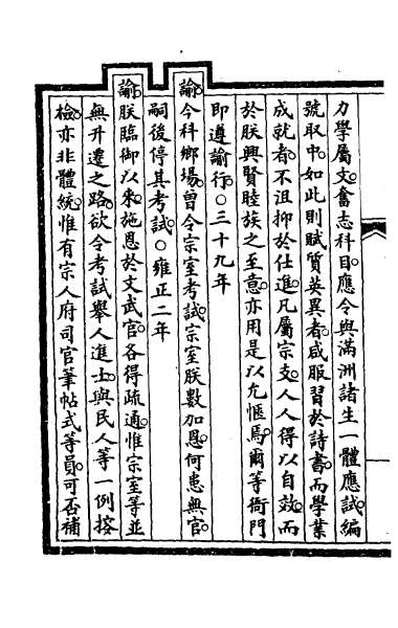 力學屬文奮志科目應令與滿洲諸生一體應試編
號取中如此則賦質英異者咸服習於詩書而學業
成就者不沮抑於仕進凡屬宗支人人得以自效而
於朕興賢睦族之至意亦用是以允愜焉爾等衙門
即遵諭行○三十九年
諭今科鄉場曾令宗室考試宗室朕數加恩何患無官
嗣後停其考試○雍正二年
諭朕臨御以來施恩於文武官各得疏通惟宗室等並
無升遷之路欲令考試舉人進士與民人等一例搜
檢亦非體統惟有宗人府司官筆帖式等員可否補